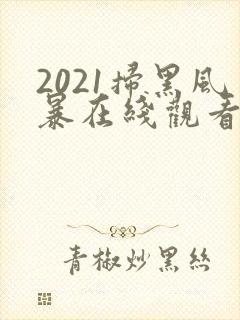 2021掃黑风
暴在綫觀看
青椒炒黑絲